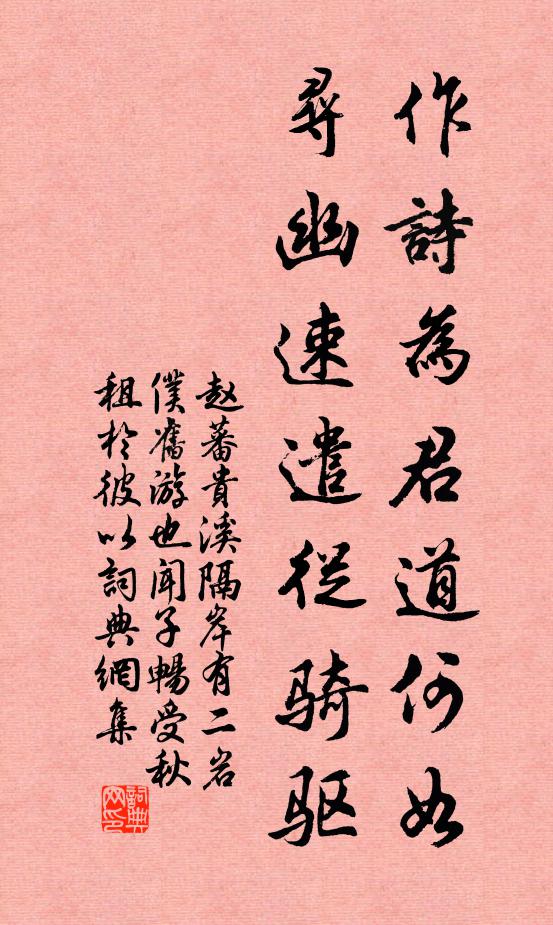 作詩為君道何如
尋幽速遣從骑驱
赵蕃貴溪隔岸有二岩
僕舊游也聞子暢受秋
租於彼以詞典網集
詞典网印